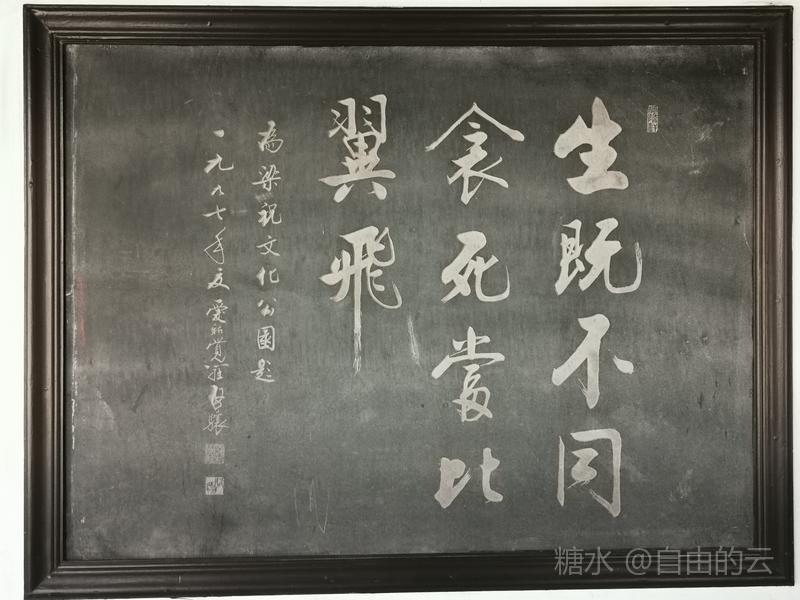 生既不同
衾死當比
翼飛
為梁祝文化公園題
一九九七年夏愛新覺羅啓驤
糖水 @自由的云